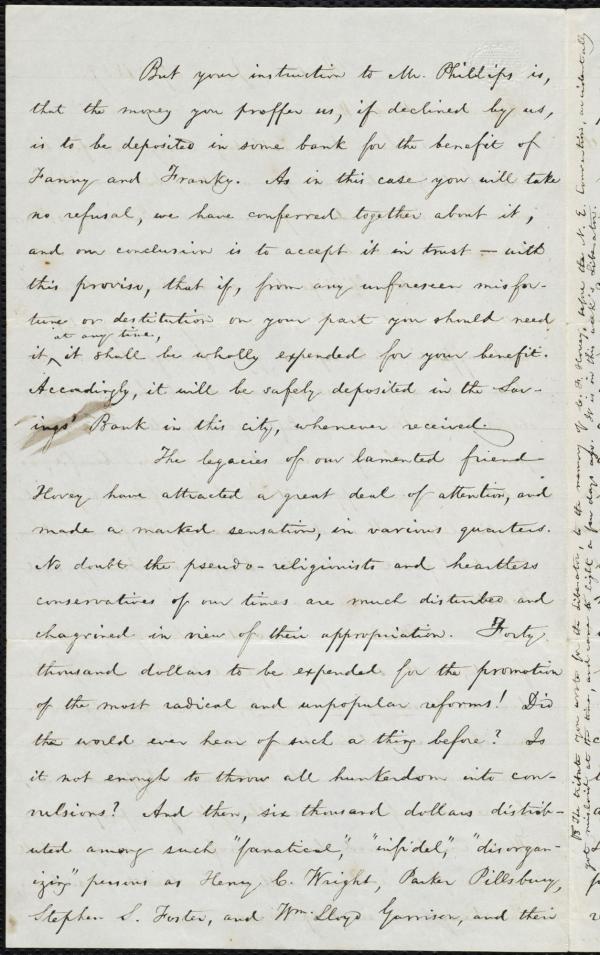 But your instruction to Mr. Phillips is,
that the money you proffer us, if declined by us,
is to be deposited in some bank for the benefit of
Fanny and Franky. As in this case you will take
no refusal, we have conferred together about it,
and our conclusion is to accept it in trust — with
this proviso, that if, from any unforeseen misfor-
tune or destitution on your part you should need
at any time,
it, it shall be wholly expended for your benefit.
Accordingly, it will be safely deposited in the Sav-
ings' Bank in this city, whenever received.
The legacies of our lamented friend
Hovey have attracted a great deal of attention, and
made a marked sensation, in various quarters.
No doubt the pseudo-religionists and heartless
conservatives of our times are much disturbed and
chagrined in view of their appropriation. Forty
thousand dollars to be expended for the promotion
of the most radical and unpopular reforms! Did
the world ever hear of such a thing before? Is
it not enough to throw all hunkerdom into con-
vulsions? And then, six thousand dollars distrib-
uted among such "fanatical," "infidel," "disorgan-
izing" persons as Henry C. Wright, Parker Pillsbury,
Stephen S. Foster, and Wm. Lloyd Garrison, and their
The tribute you wrote for the Liberator, to the memory of C. F. Hovey, before the N. E. Convention, accidentally
got mislaid at the time, and came to light a few days ago. It is in this week's Liberator.